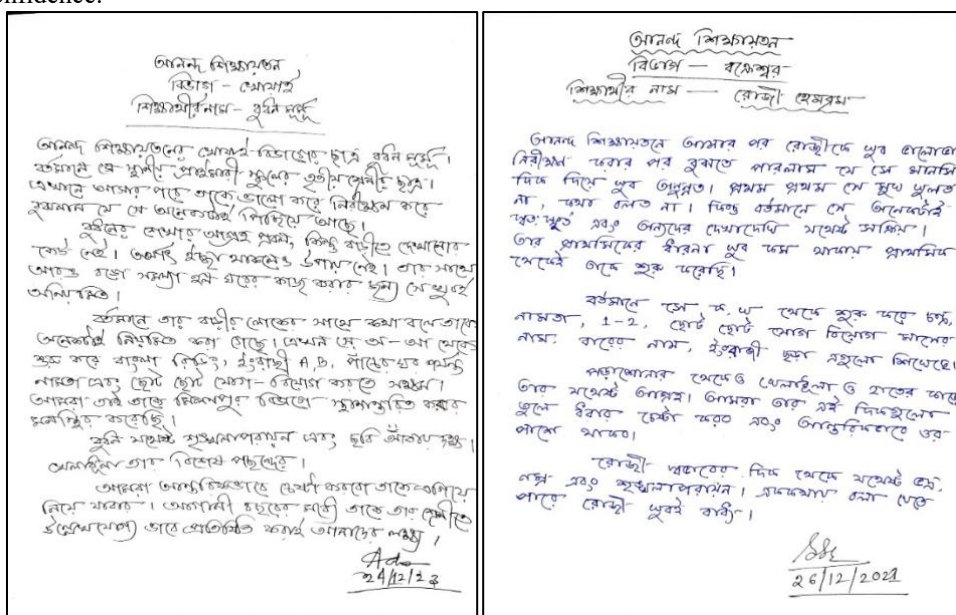 onfidence.
আনন্দ শিক্ষায়তন
বিভাগ - খোয়াই
শিক্ষার্থীর নাম - বুধন মুর্মু
আনন্দ শিক্ষায়তনের খোয়াই বিভাগের ছাত্র বুধন মুর্মু।
বর্তমানে সে স্থানীয় প্রাথমিক স্কুলের তৃতীয় শ্রেণীর ছাত্র।
এখানে আসার পরে তাকে ভালো করে নিরীক্ষন করে
বুঝলাম যে সে অনেকটাই পিছিয়ে আছে।
বুধনের শেখার আগ্রহ প্রবল, কিন্তু বাড়ীতে দেখানোর
কেউ নেই। অর্থাৎ ইচ্ছা থাকলেও উপায় নেই। তার সাথে
আরও বড়ো সমস্যা হল ঘরের কাজ করার জন্য সে খুবই
অনিয়মিত।
বর্তমানে তার বাড়ীর লোকের সাথে কথা বলে তাকে
অনেকটাই নিয়মিত করা গেছে। এখন সে অ-আ থেকে
শুরু করে বাংলা রিডিং, ইংরাজী A,B, পাঁচের ঘর পর্যন্ত
নামতা এবং ছোট ছোট যোগ-বিয়োগ করতে সক্ষম।
আমরা তাই তাকে বিভাগে স্থানান্তরিত করার
মনস্থির করেছি।
যথেষ্ট শৃঙ্খলাপরায়ন এবং ছবি আঁকায় দক্ষ।
খেলাধূলা তার বিশেষ পছন্দের।
আমরা আন্তরিকভাবে চেষ্টা করবো তাকে এগিয়ে
নিয়ে যাবার। আগামী বছরের মধ্যে তাকে তার শ্রেণীতে
উল্লেখযোগ্য ভাবে প্রতিষ্ঠিত করাই আমাদের লক্ষ্য।
24/12/23
আনন্দ শিক্ষায়তন
বিভাগ - বক্রেশ্বর
শিক্ষার্থীর নাম - রোজী হেমব্রম
আনন্দ শিক্ষায়তনে আসার পর রোজীকে খুব ভালোভা
নিরীক্ষন করার পর বুঝতে পারলাম যে সে মানসি
দিক দিয়ে খুব অনুন্নত। প্রথম প্রথম সে মুখ খুলত
না, কথা বলত না। কিন্তু বর্তমানে সে অনেকটাই
স্বতঃস্ফূর্ত এবং অন্যদের দেখাদেখি যথেষ্ট সক্রিয়।
তার প্রাথমিকের ধারনা খুব কম থাকায় প্রাথমিক
থেকেই তাকে শুরু করেছি।
বর্তমানে সে ক, খ থেকে শুরু করে ছড়া,
নামতা, 1-2, ছোট ছোট যোগ বিয়োগ মাসের
নাম, বারের নাম, ইংরাজী ছড়া এগুলো শিখেছে।
পড়াশোনার থেকেও খেলাধূলা ও হাতের কাজে
তার যথেষ্ট আগ্রহ। আমরা তার এই দিকগুলো
তুলে ধরার চেষ্টা করব এবং আন্তরিকভাবে ওর
পাশে থাকব।
রোজী স্বভাবের দিক থেকে যথেষ্ট ভদ্র,
নম্র এবং শৃঙ্খলাপরায়ন। এককথায় বলা যেতে
পারে রোজী খুবই বাধ্য।
26/12/2021